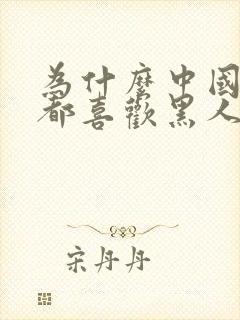 為什麼中國
都喜歡黑人
宋丹丹